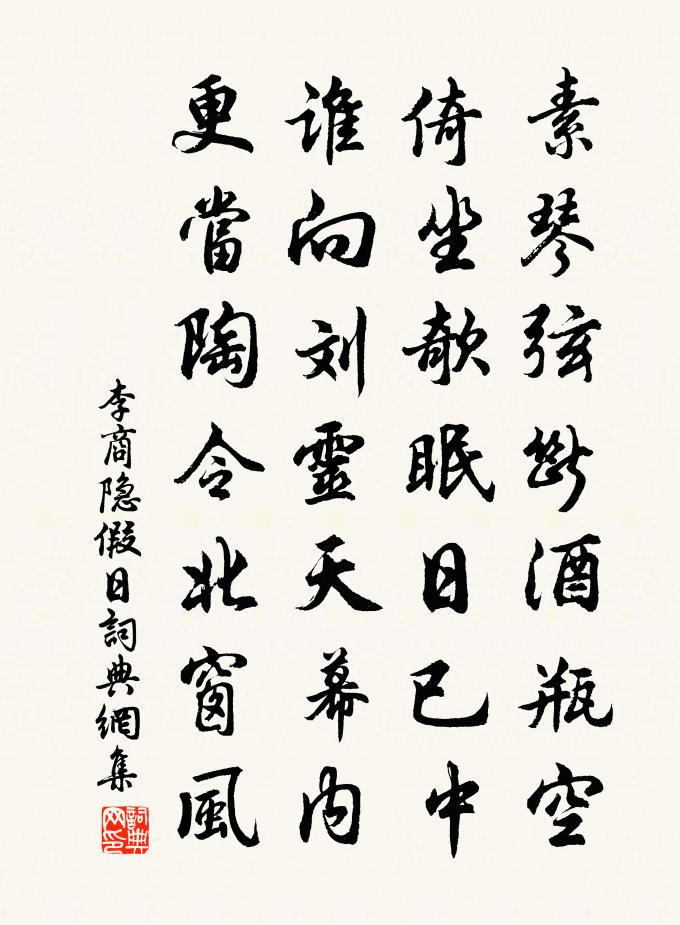 素琴弦斷酒瓶空
倚坐欹眠日已中
谁向刘靈天幕内
更當陶令北窗風
李商隐假日詞典網集
詞典
网印